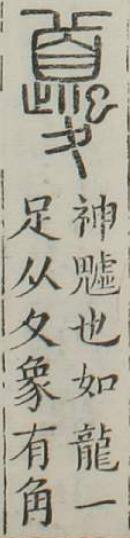 夔
神魖也如龍一
足从夊象有角